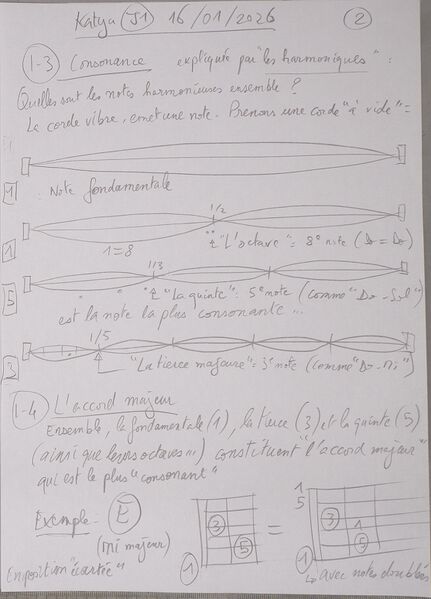 Katya J1 16/01/2026 2
1-3 Consonance expliquée par "les harmoniques" :
Quelles sont les notes harmonieuses ensemble ?
La corde vibre, émet une note. Prenons une corde "à vide" =
1 : Note fondamentale
1/2
1 1=8 "L'octave" = 8e note (Do = Do)
1/3
5 "La quinte" : 5e note (comme "Do - Sol")
est la note la plus consonante ...
1/5
3 "La tierce majeure" = 3e note (comme "Do - Mi")
1-4 L'accord majeur
Ensemble, la fondamentale (1), la tierce (3) et la quinte (5)
(ainsi que leurs octaves ...) constituent "l'accord majeur"
qui est le plus "consonant"
Exemple : E
(mi majeur)
En position "écartée"
3 5 1 =
1
5
3 1 5
1
avec notes doublées